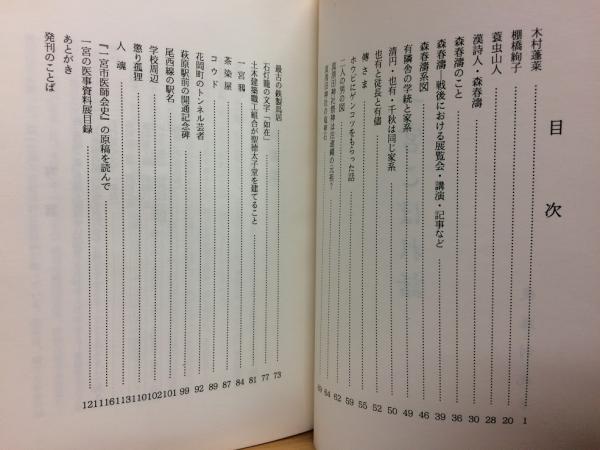 目次
木村蓬莱 1
棚橋絢子 20
蓑虫山人 28
漢詩人・森春濤 30
森春濤のこと 36
森春濤 戦後における展覧会・講演・記事など 39
森春濤系図 46
有隣舎の学統と家系 49
清円・也有・千秋は同じ家系 50
也有と従長と有儘 52
傅さま 55
ホウビにゲンコツをもらった話 59
二人の男の図 62
真清田神社祭神は注連縄の元祖? 64
69
最古の鉄製鳥居 73
石灯籠の文字「如在」 77
土木建築職工組合が聖徳太子堂を建てること 81
一宮鴉 84
茶染屋 87
コウド 89
花岡町のトンネル芸者 92
萩原駅前の開通記念碑 99
尾西線の駅名 101
学校周辺 102
懲り孤狸 110
人魂 113
『一宮市医師会史』の原稿を読んで 116
一宮の医事資料展目録 121
あとがき
発刊のことば